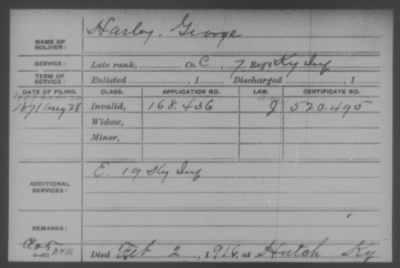 NAME OF SOLDIER: Harley, George
SERVICE: Late rank, Co. C, 7 Reg't Ky Inf
TERM OF SERVICE: Enlisted , 1 Discharged , 1
DATE OF FILING. CLASS. APPLICATION NO. LAW. CERTIFICATE NO.
1871 Aug 28 Invalid, 168.436 520.495
Widow,
Minor,
ADDITIONAL SERVICES: E. 19 Ky Inf
REMARKS:
Died Feb 2, 1916, at Hutch Ky